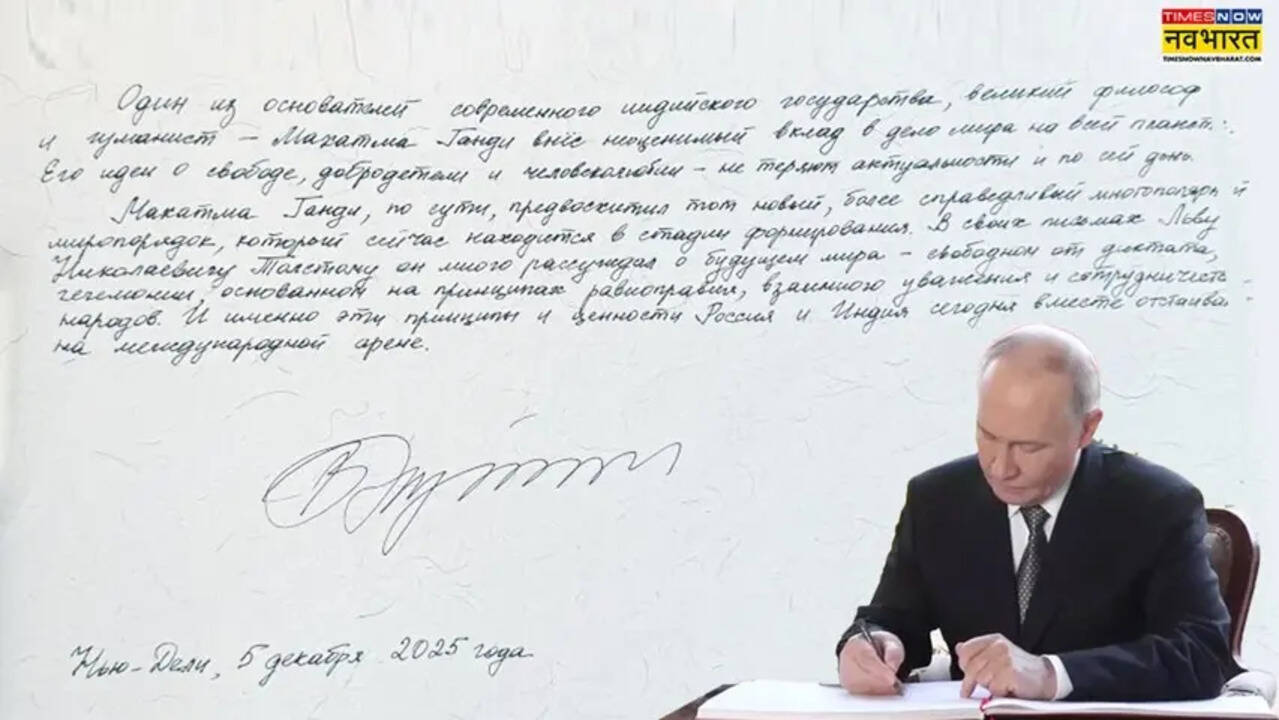 TIMES NOW
नवभारत
TIMESNOWNAVBHARAT.COM
Один из основателей современного индийского государства, великий философ
и гуманист – Махатма Ганди внёс неоценимый вклад в дело мира на всей планет
Его идеи о свободе, добродетели и человеколюбии – не теряют актуальности и по сей день.
Махатма Ганди, по сути, предвосхитил тот новый, более справедливый многополярн й
миропорядок, который сейчас находится в стадии формирования. В своих письмах Льву
Николаевичу Толстому он много рассуждал о будущем мира – свободном от диктата,
гегемонии, основанном на принципах равноправия, взаимного уважения и сотрудничеств
народов. И именно эти принципы и ценности Россия и Индия сегодня вместе отстаива
на международной арене.
Нью-Дели, 5 декабря 2025 года